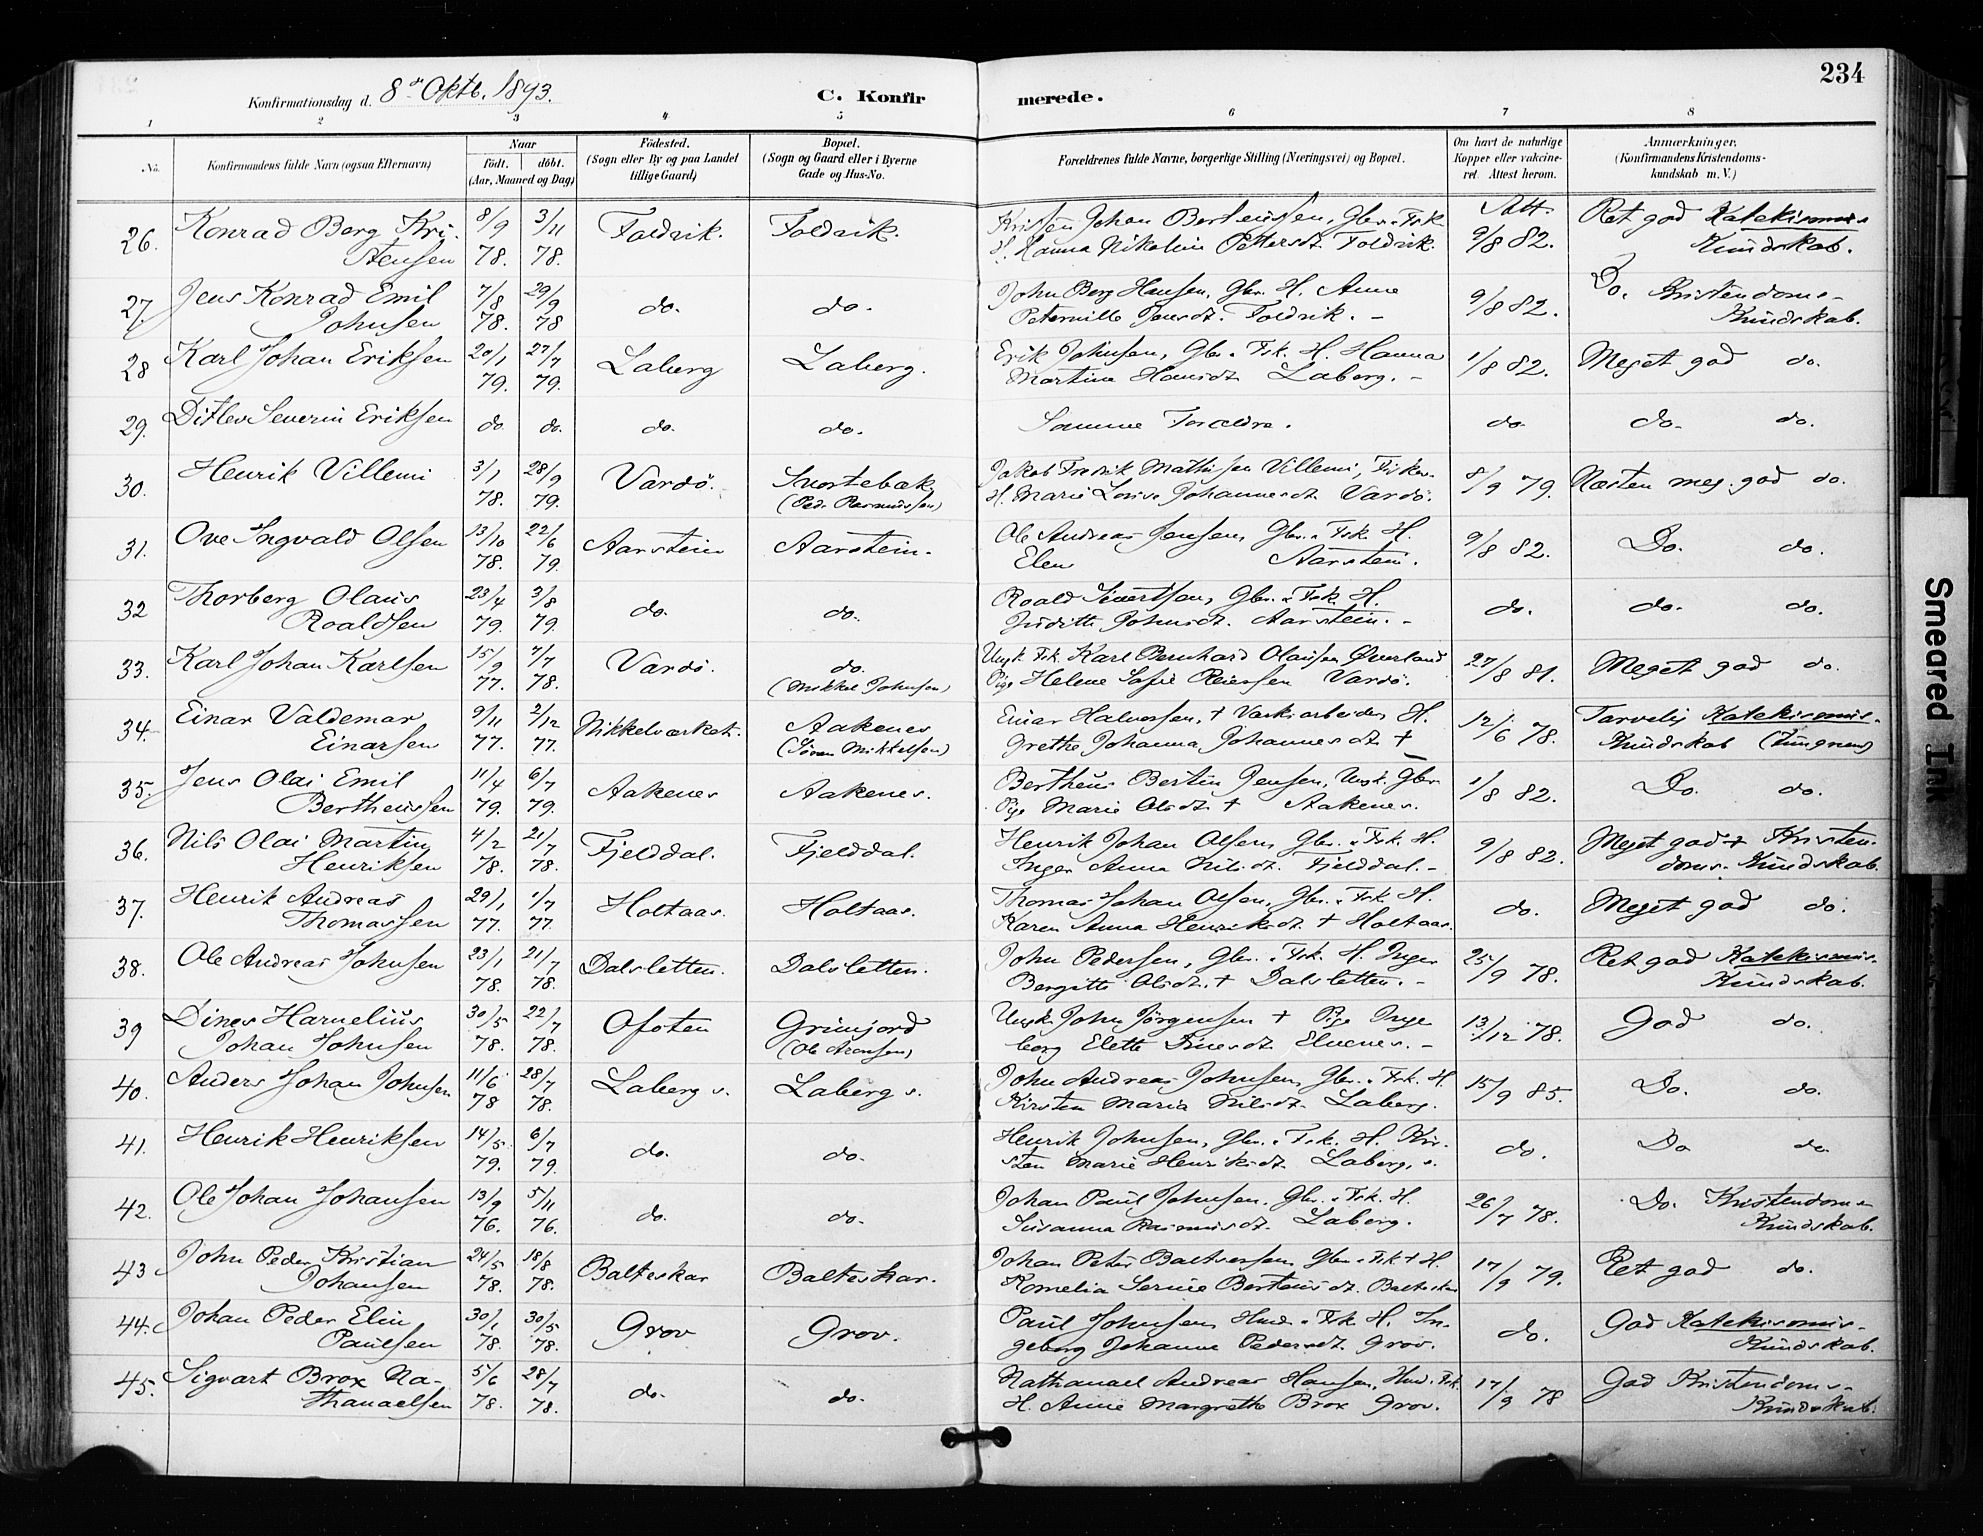 234
Konfirmationsdag d. 8de Oktb. 1893.
C. Konfirmerede.
1 2 3 4 5 6 7 8
No.
Konfirmandens fulde Navn (ogsaa Efternavn)
Naar
födt. döbt.
(Aar, Maaned og Dag)
Födested.
(Sogn eller By og paa Landet
tillige Gaard)
Bopæl.
(Sogn og Gaard eller i Byerne
Gade og Hus-No.
Forældrenes fulde Navne, borgerlige Stilling (Næringsvei) og Bopæl.
Om havt de naturlige
Kopper eller vakcine-
ret. Attest herom.
Anmærkninger.
(Konfirmandens Kristendoms-
kundskab m. V.)
26. Konrad Berg Kri- 8/9 3/11 Foldvik. Foldvik. Kristen Johan Berthensen, Gbr. & Fsk. Att. Ret god Katekismus
stensen 78. 78. H. Hanna Nikoline Pettersdt. Foldvik. 9/8 82. Kundskab.
27. Jens Konrad Emil 7/8 29/9 do. do. John Berg Hansen, Gbr. H. Anne 9/8 82. Do. Kristendoms-
Johnsen 78. 78 Peternille Jensdt. Foldvik. - Kundskab.
28 Karl Johan Eriksen 20/1 27/7 Laberg Laberg. Erik Johnsen, Gbr. & Fsk. H. Hanna 1/8 82. Meget god do.
79. 79. Martine Hansdt. Laberg. -
29. Ditlev Severin Eriksen do. do. do. do. Samme Forældre. do. do. do.
30. Henrik Villemi 3/1 28/9 Vardö. Svartebak Jakob Fredrik Mathisen Villemi, Fisker. 8/9 79. Næsten meg. god do.
78. 79. (Ped. Rasmussen) H. Marie Lovise Johannesdt. Vardö.
31. Ove Ingvald Olsen 13/10 22/6 Aarstein Aarstein. Ole Andreas Jensen, Gbr. & Fsk. H. 9/8 82. Do. do.
78. 79. Elen Aarstein.
32 Thorberg Olaus 23/4 3/8 do. do. Roald Sivertsen, Gbr. & Fsk. H. do. do. do.
Roaldsen 79. 79. Judith Johnsdt. Aarstein. -
33. Karl Johan Karlsen 15/9 7/7 Vardö. do. Ungk. Fsk. Karl Bernhard Olaussen Øverland 27/8 81. Meget god do.
77. 78. (Mikkel Johnsen) Pige Helene Sofie Reiersen Vardö.
34. Einar Valdemar 9/11 2/12 Nikkelværket. Aakenes Einar Halvorsen, + Verksarbeider H. 12/6 78. Tarvelig Katekismus-
Einarsen 77. 77. (Sören Mikkelsen) Grethe Johanna Johannesdt + Kundskab
35. Jens Olai Emil 11/4 6/7 Aakenes Aakenes. Bertheus Bertin Jensen, Ungk. Gbr. 1/8 82. Do. do.
Bertheussen 79. 79. Pige Marie Olsdt + Aakenes.
36. Nils Olai Martin 4/2 21/7 Fjelddal. Fjelddal. Henrik Johan Olsen, Gbr. & Fsk. H. 9/8 82. Meget god + Kristen-
Henriksen 78. 78. Inger Anna Nilsdt. Fjelddal. - doms-Kundskab.
37. Henrik Andreas 29/1 1/7 Holtaas. Holtaas. Thomas Johan Olsen, Gbr. & Fsk. H. do. Meget god do.
Thomassen 77. 77. Karen Anna Henriksdt. + Holtaas.
38. Ole Andreas Johnsen 23/1 21/7 Dalsletten. Dalsletten. John Pedersen, Gbr. & Fsk. H. Inger 25/9 78. Ret god Katekismus-
78. 78. Bergitte Olsdt. + Dalsletten. - Kundskab.
39 Dines Harnelius 30/5 22/7 Ofoten Grunfjord Ungk. John Jörgensen + Pige Inge- 13/12 78. God do.
Johan Johnsen 78. 78. (Ole Aronsen) borg Elette Dinesdt. Elvenes. -
40. Anders Johan Johnsen 11/6 28/7 Laberg s. Laberg s. John Andreas Johnsen, Gbr. & Fsk. H. 15/9 85. Do. do.
78 78. Kirsten Maria Nilsdt. Laberg.
41. Henrik Henriksen 14/5 6/7 do. do. Henrik Johnsen, Gbr. & Fsk. H. Kir- do. Do do
79. 79. sten Marie Henriksdt. Laberg. s.
42. Ole Johan Johansen 13/9 5/11 do. do. Johan Paul Johnsen, Gbr. & Fsk. H. 26/7 78. Do. Kristendoms
76. 76. Susanna Rasmusdt. Laberg. Kundskab.
43 John Peder Kristian 24/5 18/8 Balteskar Balteskar. Johan Peter Baltsersen, Gbr. & Fsk + H. 17/9 79. Ret god do.
Johansen 78. 78. Kornelia Serine Berteusdt. Balteskar
44. Johan Peder Elin 30/1 30/5 Grov Grov. Paul Johnsen, Husm. & Fsk. H. In- do. God Katekismus-
Paulsen 78. 78. geborg Johanne Pedersdt. Grov. Kundskab.
45. Sigvart Brox Na- 5/6 28/7 do. do. Nathanael Andreas Hansen, Husm. & Fsk. 17/9 78 God Kristendoms-
thanaelsen 78. 78. H. Anne Margrethe Brox Grov. Kundskab.
Smeared Ink